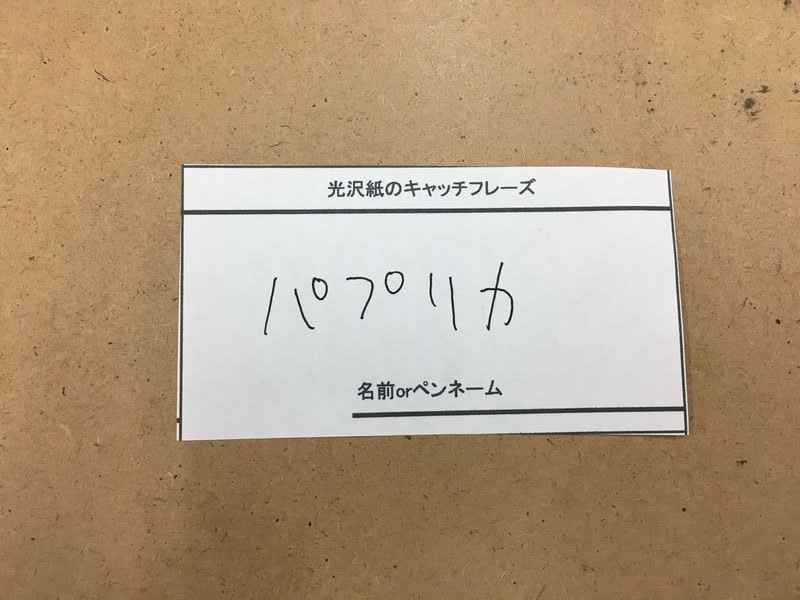 光沢紙のキャッチフレーズ
パプリカ
名前orペンネーム